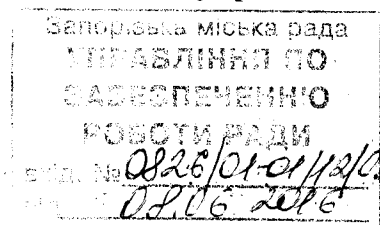 Запорізька міська рада
УПРАВЛІННЯ ПО
ЗАБЕЗПЕЧЕННЮ
РОБОТИ РАДИ
вхід. № 0826/01-01/12/0
08.06 2016